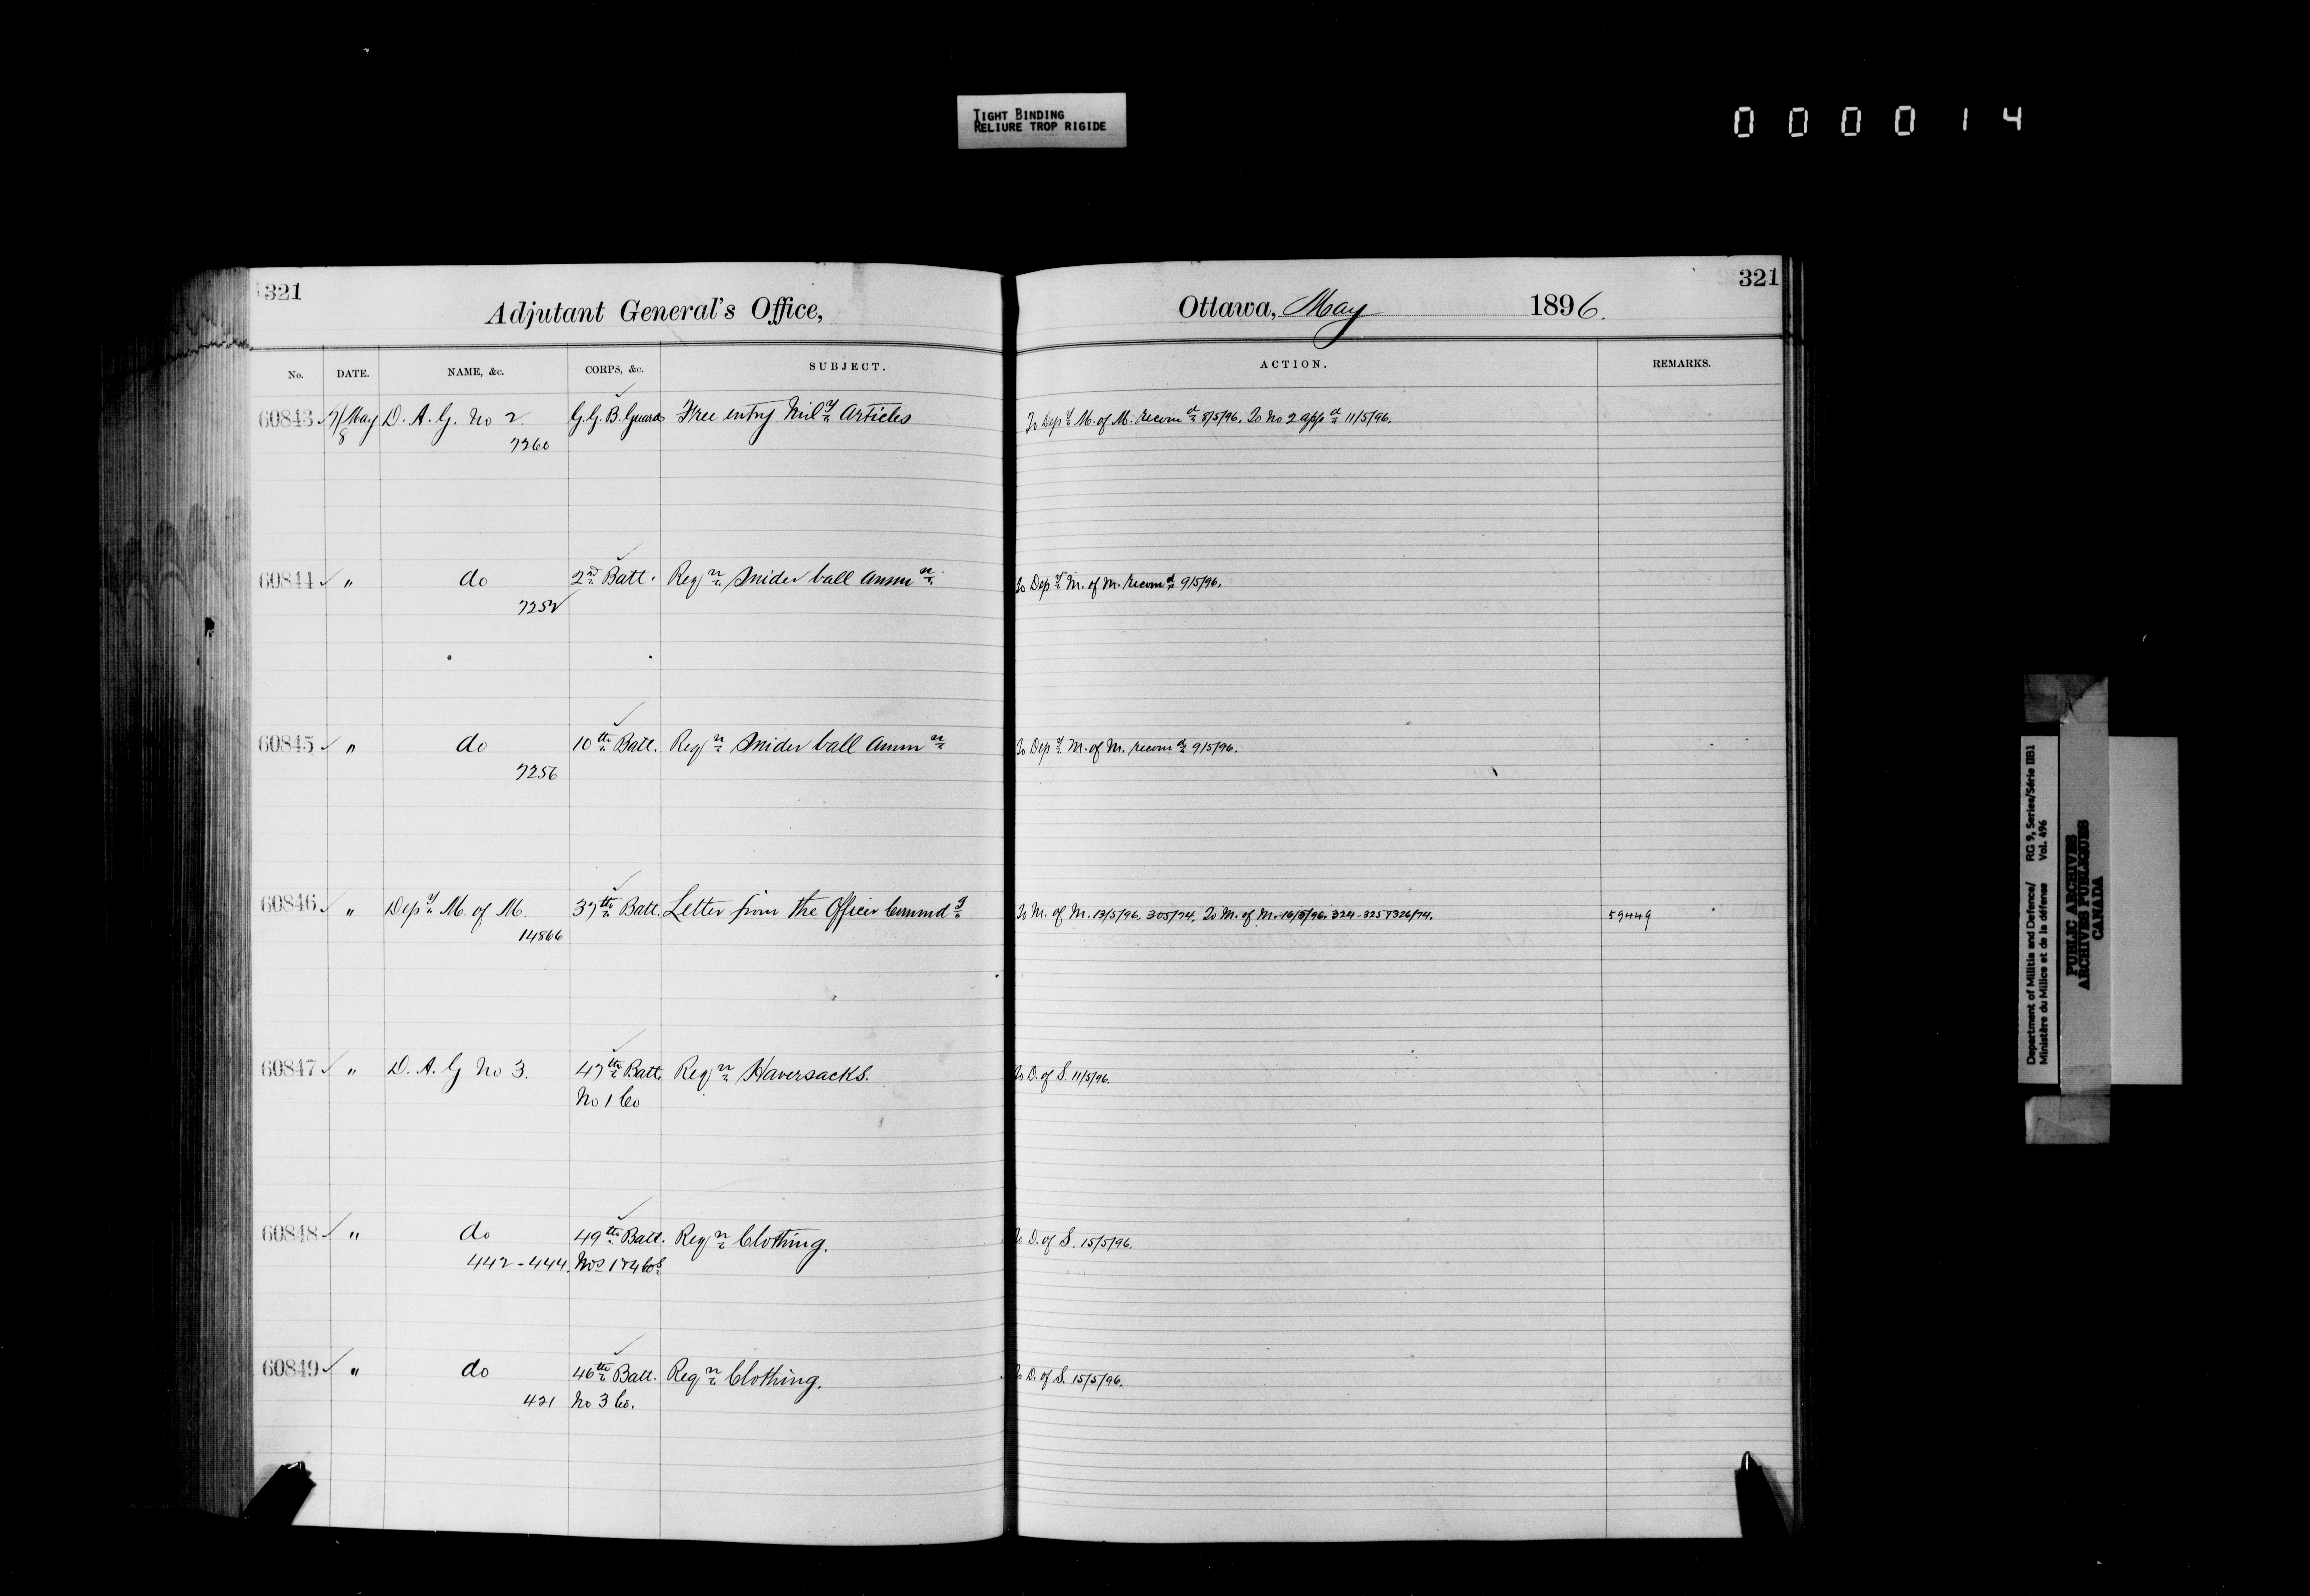 TIGHT BINDING
RELIURE TROP RIGIDE
000014
321
Adjutant General's Office,
Ottawa, May 1896.
321
No. DATE. NAME, &c. CORPS, &c. SUBJECT. ACTION. REMARKS.
60843 7/8 May D. A. G. No 2. G. G. B. Guards Free entry Mily Articles To Depy M. of M. recomd 8/5/96. To No 2 appd 11/5/96.
7260
60844 " do 2nd Batt. Reqn Snider ball Ammn To Depy M. of M. recomd 9/5/96.
7252
60845 " do 10th Batt. Reqn Snider ball Ammn To Depy M. of M. recomd 9/5/96.
7256
60846 " Depy M. of M. 37th Batt. Letter from the Officer Commdg To M. of M. 13/5/96. 305/74. To M. of M. 16/5/96. 324-325 & 326/74. 59449
14866
60847 " D. A. G No 3. 47th Batt. Reqn Haversacks. To D. of S. 11/5/96.
No 1 Co
60848 " do 49th Batt. Reqn Clothing. To D. of S. 15/5/96.
442-444. Nos 1 & 4 Cos
60849 " do 46th Batt. Reqn Clothing. To D. of S. 15/5/96.
421 No 3 Co.
Department of Militia and Defence/ RG 9, Series/Série IIB1
Ministère du Milice et de la défense Vol. 496
PUBLIC ARCHIVES
ARCHIVES PUBLIQUES
CANADA